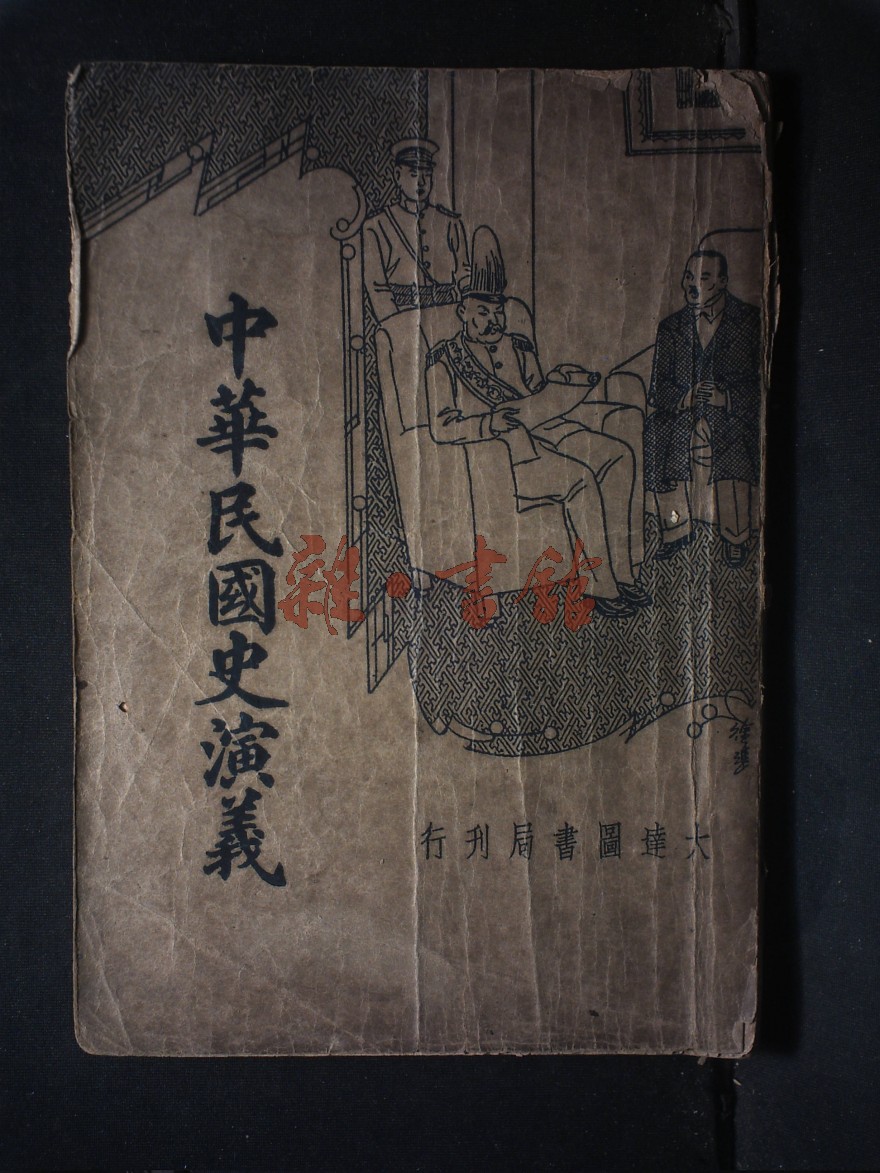 中華民國史演義
雜·書館
大達圖書局刊行